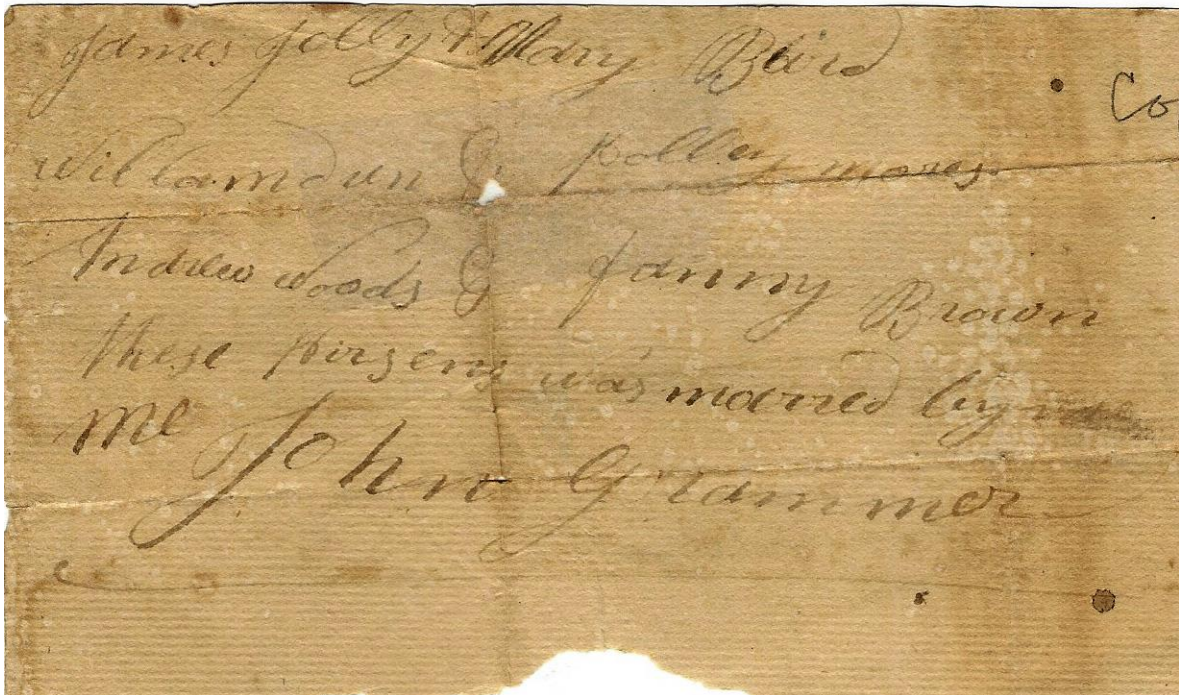 James Jolly & Mary Baird
Co
William dun & polley mores.
Andrew Woods & fanny Brown
these pirsens was marred by
me John Grammer